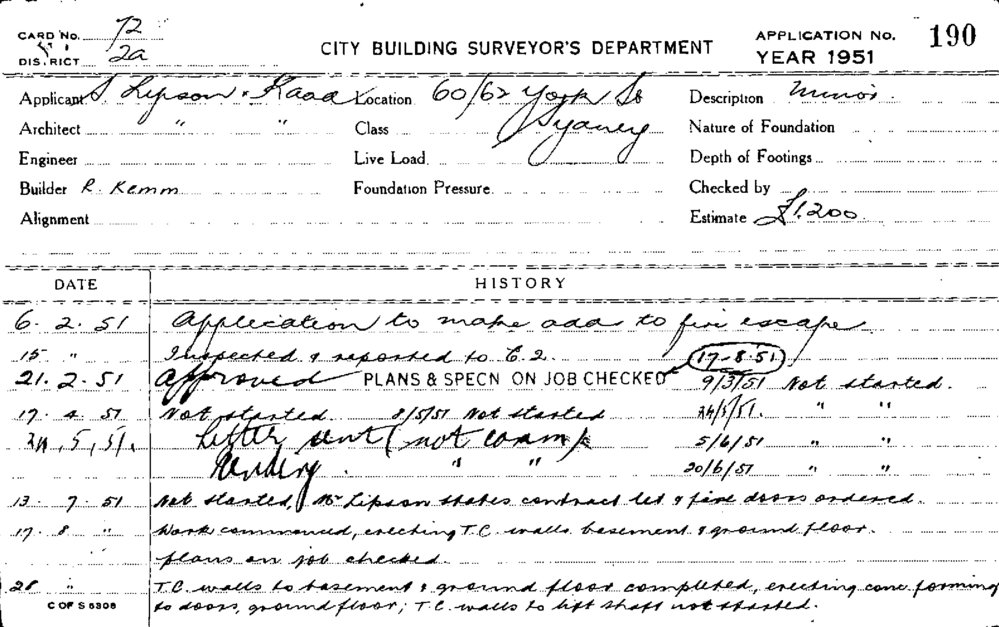 CARD NO. 72
DISTRICT 2a
CITY BUILDING SURVEYOR'S DEPARTMENT
APPLICATION NO. 190
YEAR 1951
Applicant S. Lipson & Kaad Location 60/62 York St Description Minor
Architect " " Class Sydney Nature of Foundation
Engineer Live Load. Depth of Footings
Builder R. Kemm Foundation Pressure. Checked by
Alignment Estimate £1,200
DATE HISTORY
6. 2. 51 Application to make add to fire escape
15 " Inspected & reported to C.2. 17-8-51
21. 2. 51 Approved PLANS & SPECN ON JOB CHECKED 9/3/51 Not started.
17. 4. 51 Not started 8/5/51 Not started 24/5/51. " "
24, 5, 51. Letter sent (not comm 5/6/51 " "
" " 20/6/51 " "
13. 7. 51 Not started, Mr Lipson states contract let & fire doors ordered.
17. 8 " Work commenced, erecting T.C. walls basement & ground floor.
plans on job checked.
28 " T.C. walls to basement & ground floor completed, erecting conc forming
to doors, ground floor; T.C. walls to lift shaft not started.
C OF S 6308